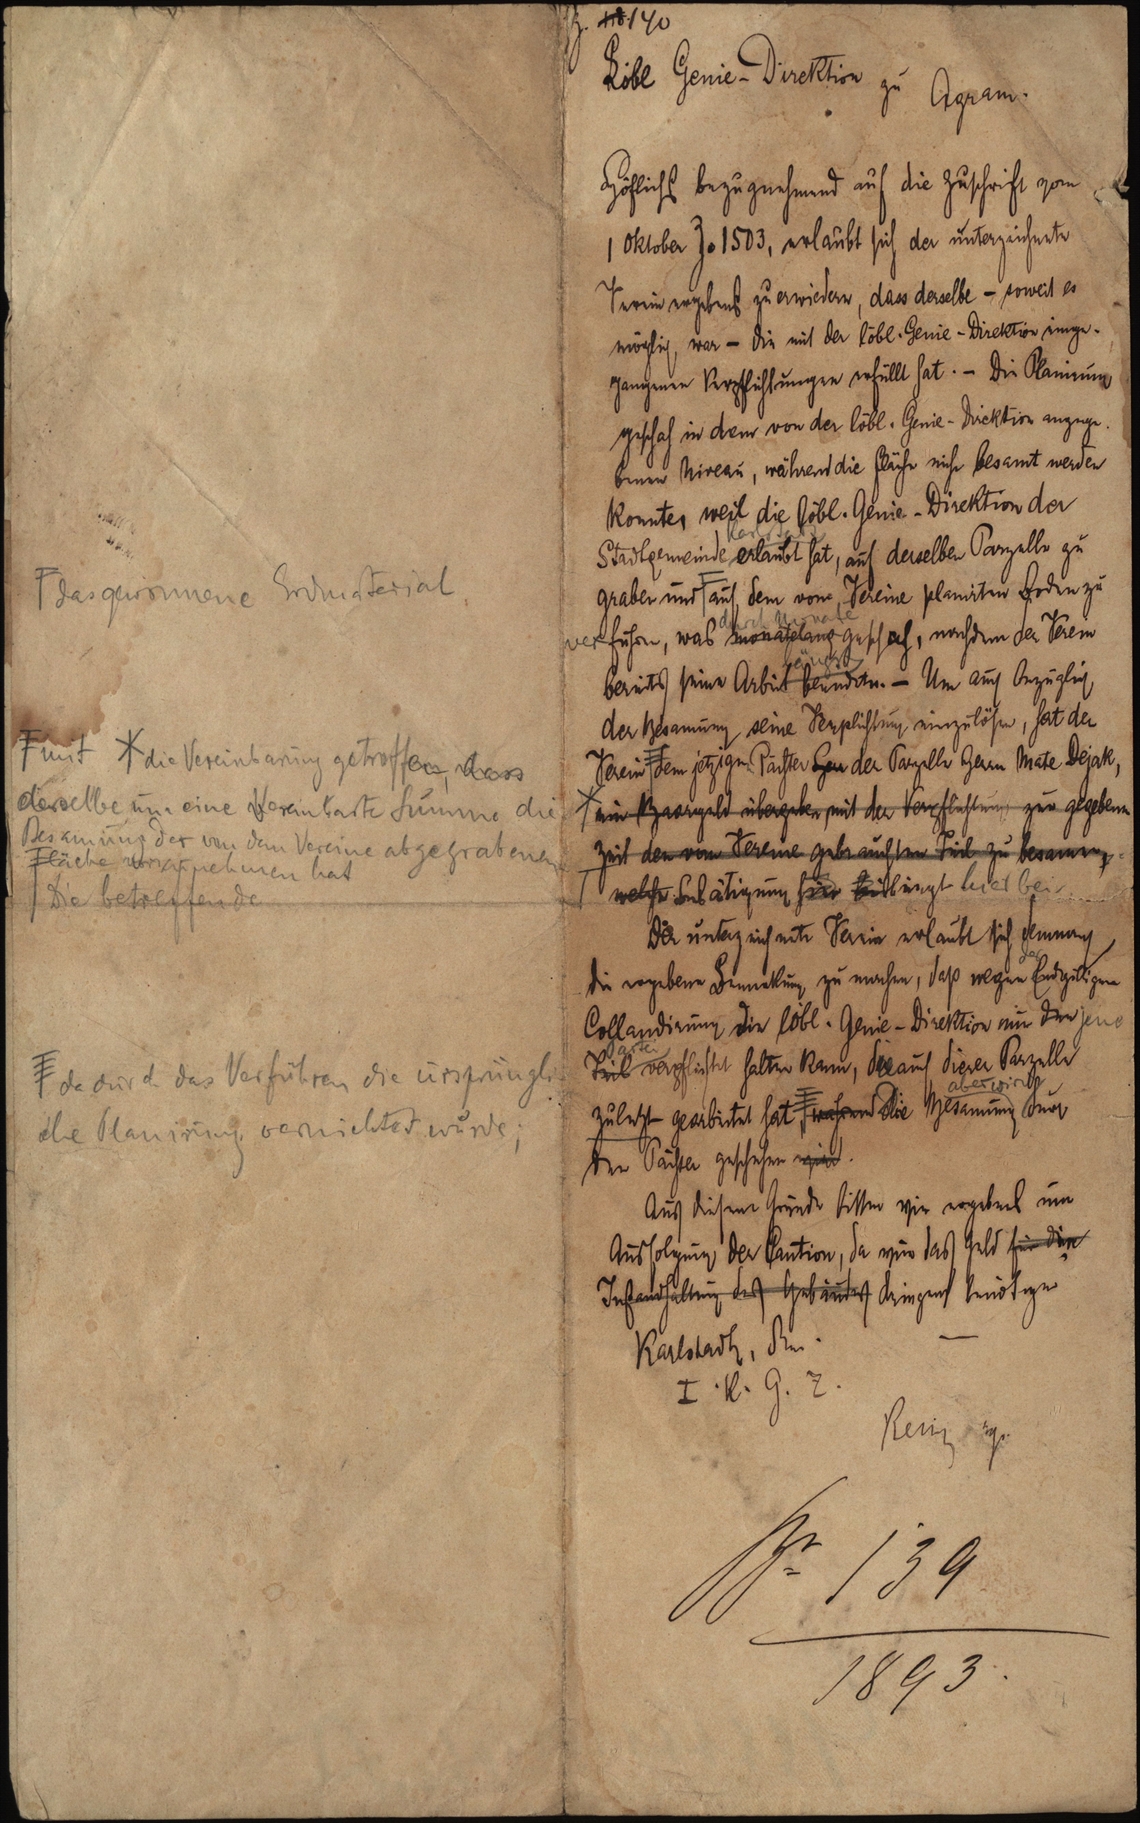 140
Löbl Genie-Direktion zu Agram.
Höflichst bezugnehmend auf die Zuschrift vom
1 Oktober Z. 1503, erlaubt sich der unterzeichnete
Verein ergebenst zu erwiedern, dass derselbe – soweit es
möglich war – die mit der löbl. Genie-Direktion einge-
gangenen Verpflichtungen erfüllt hat. – Die Planirung
geschah in dem von der löbl. Genie-Direktion angege-
benen Niveau, während die Fläche nicht besamt werden
konnte, weil die löbl. Genie-Direktion der
Stadtgemeinde Karlstadt erlaubt hat, auf derselben Parzelle zu
graben und auf dem vom Vereine planirten Boden zu
verführen, was durch Monate monatelang geschah, nachdem der Verein
bereits seine Arbeit längst beendete. – Um auch bezüglich
der Besamung seine Verpflichtung einzulösen, hat der
Verein dem jetzigen Pächter der Parzelle Herrn Mate Dejak,
ein Baargeld übergeben, mit der Verpflichtung zur gegebenen
Zeit den vom Vereine gebrauchten Teil zu besamen,
welche Bestätigung hierbei
Der unterzeichnete Verein erlaubt sich demnach
die ergebene Bemerkung zu machen, daß wegen der Endgültigen
Collaudirung die löbl. Genie-Direktion nur den jene
Partei Teil verpflichtet halten kann, die auf dieser Parzelle
zuletzt gearbeitet hat, während die Besamung aber wird durch
den Pächter geschehen wird.
Aus diesem Grunde bitten wir ergebenst um
Ausfolgung der Caution, da wir das Geld für die
Instandhaltung des Gebäudes dringend benötigen
Karlstadt, den
I. K. G. Z.
No 139
1893.
das gewonnene Erdmaterial
mit * die Vereinbarung getroffen, dass
derselbe um eine Vereinbarte Summe die
Besamung der von dem Vereine abgegrabenen
Fläche vorzunehmen hat
Die betreffende
da durch das Verführen die ursprüngli
che Planirung vernichtet wurde;